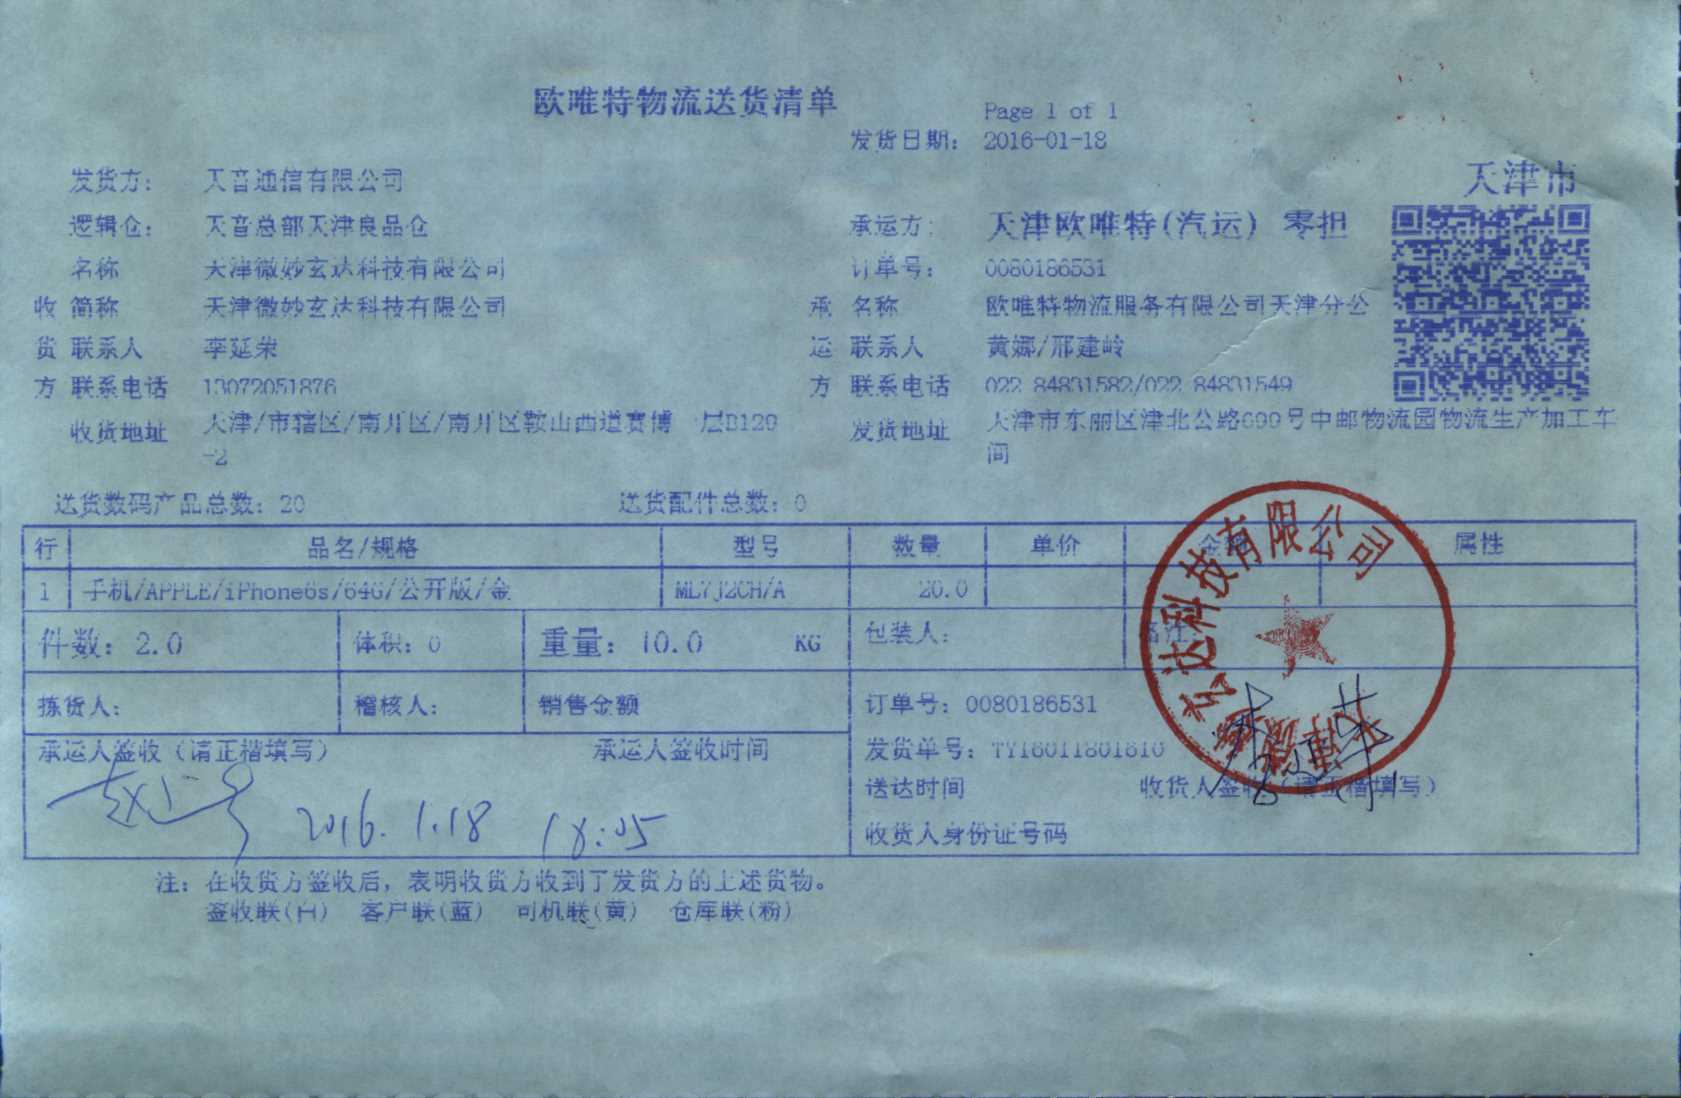 欧唯特物流送货清单
Page 1 of 1
发货日期： 2016-01-18
天津市
发货方： 天音通信有限公司
逻辑仓： 天音总部天津良品仓 承运方： 天津欧唯特(汽运) 零担
名称 天津微妙玄达科技有限公司 订单号： 0080186531
收 简称 天津微妙玄达科技有限公司 承 名称 欧唯特物流服务有限公司天津分公
货 联系人 李延荣 运 联系人 黄娜/邢建岭
方 联系电话 13072051876 方 联系电话 022 84831582/022 84831549
收货地址 天津/市辖区/南开区/南开区鞍山西道赛博 层B129 发货地址 天津市东丽区津北公路699号中邮物流园物流生产加工车
-2 间
送货数码产品总数：20 送货配件总数：0
行 品名/规格 型号 数量 单价 金额 属性
1 手机/APPLE/iPhone6s/64G/公开版/金 ML7J2CH/A 20.0
件数：2.0 体积：0 重量：10.0 KG 包装人： 备注：
拣货人： 稽核人： 销售金额 订单号：0080186531
承运人签收（请正楷填写） 承运人签收时间 发货单号：TY16011801610
送达时间 收货人签收（请正楷填写）
2016.1.18 18:05
收货人身份证号码
注：在收货方签收后，表明收货方收到了发货方的上述货物。
签收联(白) 客户联(蓝) 司机联(黄) 仓库联(粉)